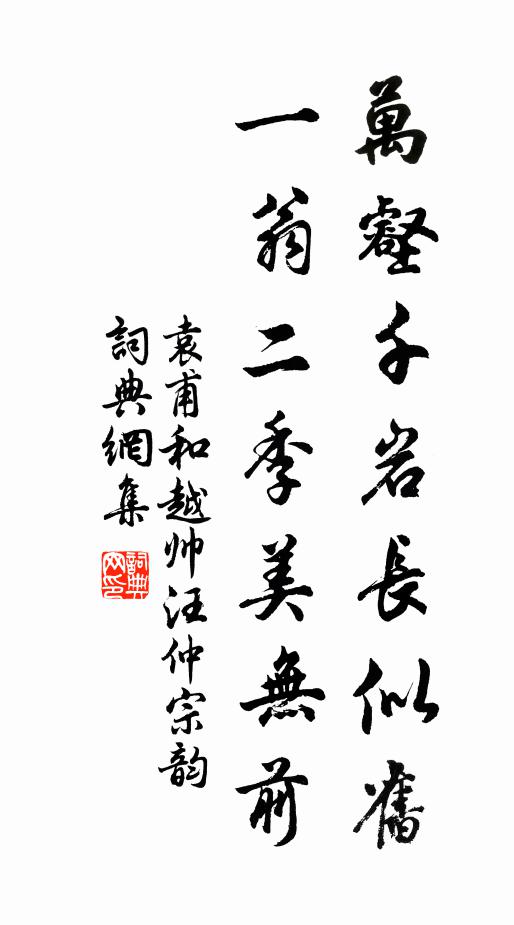 萬壑千岩長似舊
一翁二季美無前
袁甫和越帅汪仲宗韵
詞典網集
詞典網印